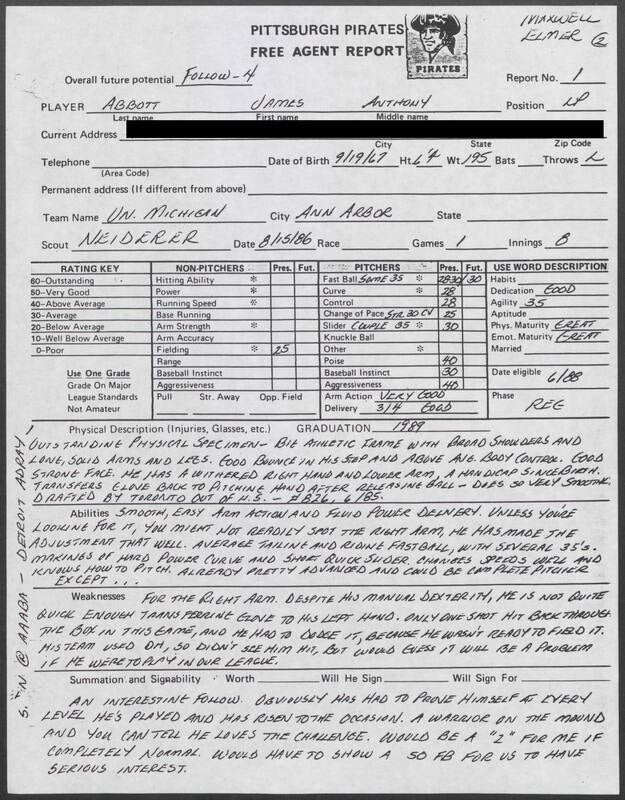 PITTSBURGH PIRATES
FREE AGENT REPORT
PIRATES
MAXWELL
ELMER 2
Overall future potential FOLLOW-4 Report No. 1
PLAYER ABBOTT JAMES ANTHONY Position LP
Last name First name Middle name
Current Address
City State Zip Code
Telephone Date of Birth 9/19/67 Ht. 6'4 Wt. 195 Bats Throws L
(Area Code)
Permanent address (If different from above)
Team Name UN. MICHIGAN City ANN ARBOR State
Scout NEIDERER Date 8/15/86 Race Games 1 Innings 8
RATING KEY NON-PITCHERS Pres. Fut. PITCHERS Pres. Fut. USE WORD DESCRIPTION
60-Outstanding Hitting Ability * Fast Ball SOME 35 * 2830 30 Habits
50-Very Good Power * Curve * 28 Dedication GOOD
40-Above Average Running Speed * Control 28 Agility 35
30-Average Base Running Change of Pace STR. 30 CV 25 Aptitude
20-Below Average Arm Strength * Slider COUPLE 35 * 30 Phys. Maturity GREAT
10-Well Below Average Arm Accuracy Knuckle Ball Emot. Maturity GREAT
0-Poor Fielding * 25 Other * Married
Range Poise 40
Use One Grade Baseball Instinct Baseball Instinct 30 Date eligible 6/88
Grade On Major Aggressiveness Aggressiveness 40
League Standards Pull Str. Away Opp. Field Arm Action VERY GOOD Phase REG
Not Amateur Delivery 3/4 GOOD
Physical Description (Injuries, Glasses, etc.) GRADUATION 1989
OUTSTANDING PHYSICAL SPECIMEN - BIG ATHLETIC FRAME WITH BROAD SHOULDERS AND
LONG, SOLID ARMS AND LEGS. GOOD BOUNCE IN HIS STEP AND ABOVE AVG. BODY CONTROL. GOOD
STRONG FACE. HE HAS A WITHERED RIGHT HAND AND LOWER ARM, A HANDICAP SINCE BIRTH.
TRANSFERS GLOVE BACK TO PITCHING HAND AFTER RELEASING BALL - DOES SO VERY SMOOTHLY.
DRAFTED BY TORONTO OUT OF H.S. - #826, 6/85.
Abilities SMOOTH, EASY ARM ACTION AND FLUID POWER DELIVERY. UNLESS YOU'RE
LOOKING FOR IT, YOU MIGHT NOT READILY SPOT THE RIGHT ARM, HE HAS MADE THE
ADJUSTMENT THAT WELL. AVERAGE TAILING AND RIDING FASTBALL, WITH SEVERAL 35'S.
MAKINGS OF HARD POWER CURVE AND SHORT QUICK SLIDER. CHANGES SPEEDS WELL AND
KNOWS HOW TO PITCH. ALREADY PRETTY ADVANCED AND COULD BE COMPLETE PITCHER
EXCEPT ...
Weaknesses FOR THE RIGHT ARM. DESPITE HIS MANUAL DEXTERITY, HE IS NOT QUITE
QUICK ENOUGH TRANSFERRING GLOVE TO HIS LEFT HAND. ONLY ONE SHOT HIT BACK THROUGH
THE BOX IN THIS GAME, AND HE HAD TO DODGE IT, BECAUSE HE WASN'T READY TO FIELD IT.
HIS TEAM USED DH, SO DIDN'T SEE HIM HIT, BUT WOULD GUESS IT WILL BE A PROBLEM
IF HE WERE TO PLAY IN OUR LEAGUE.
Summation and Signability Worth Will He Sign Will Sign For
AN INTERESTING FOLLOW. OBVIOUSLY HAS HAD TO PROVE HIMSELF AT EVERY
LEVEL HE'S PLAYED AND HAS RISEN TO THE OCCASION. A WARRIOR ON THE MOUND
AND YOU CAN TELL HE LOVES THE CHALLENGE. WOULD BE A "2" FOR ME IF
COMPLETELY NORMAL. WOULD HAVE TO SHOW A 50 FB FOR US TO HAVE
SERIOUS INTEREST.
@ AAABA - DETROIT ADRAY